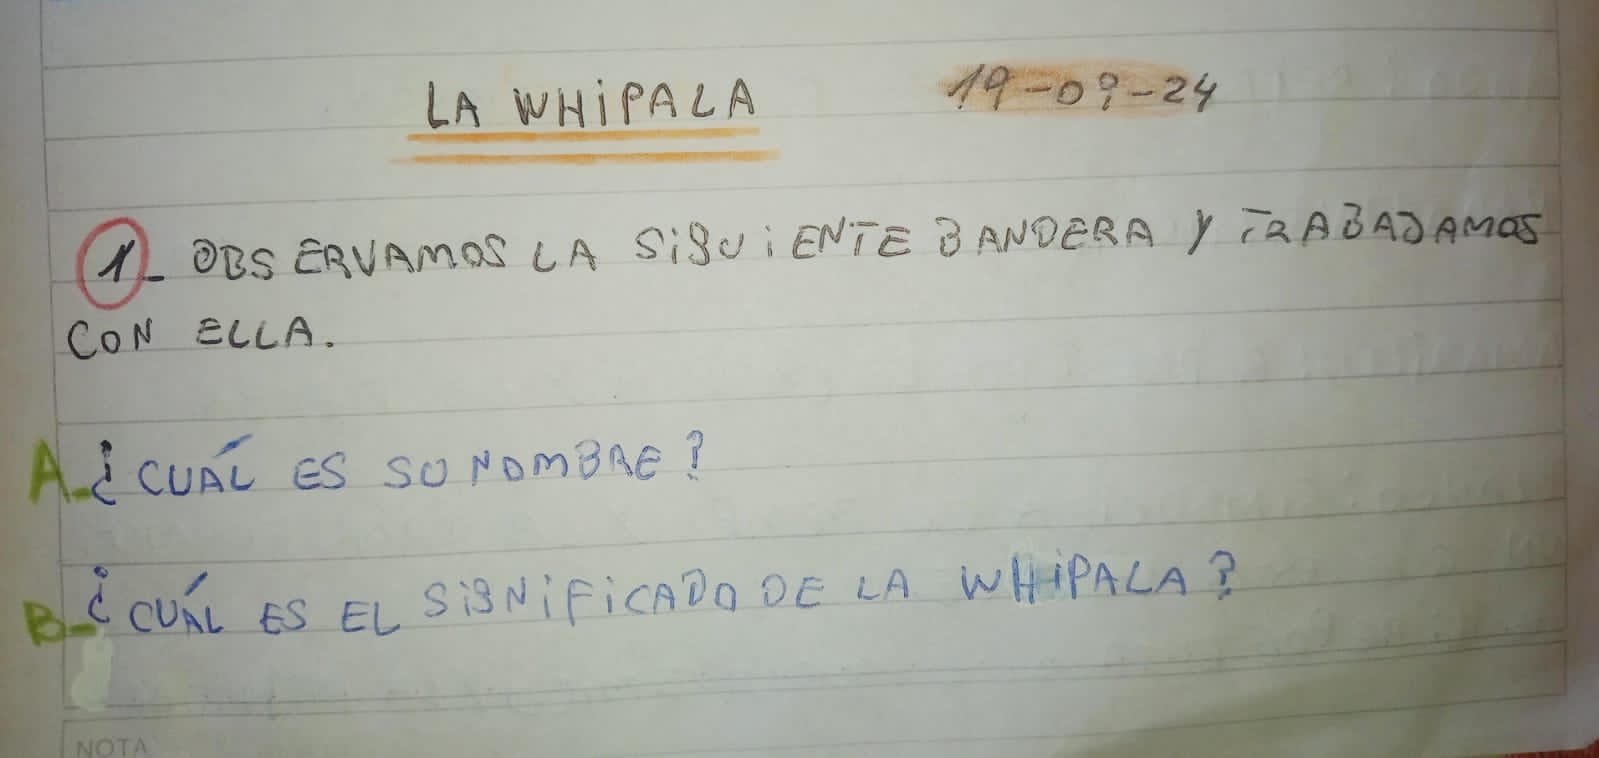 LA WHIPALA 19-09-24
1- OBSERVAMOS LA SIGUIENTE BANDERA Y TRABAJAMOS
CON ELLA.
A- ¿CUÁL ES SU NOMBRE?
B- ¿CUÁL ES EL SIGNIFICADO DE LA WHIPALA?
NOTA